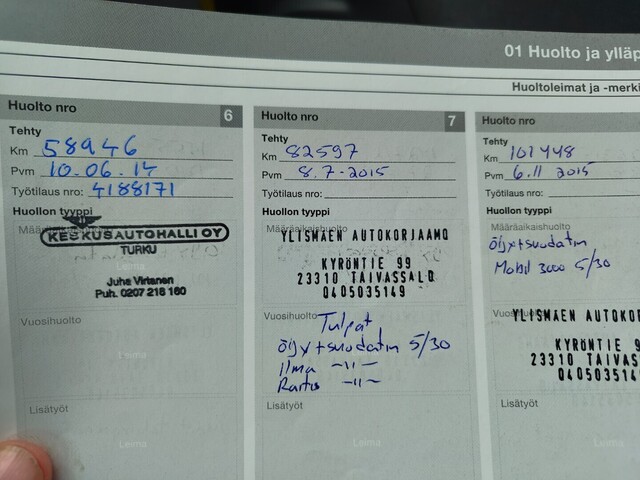 01 Huolto ja ylläp
Huoltoleimat ja -merki
Huolto nro 6
Tehty
Km 58946
Pvm 10.06.14
Työtilaus nro: 4188171
Huollon tyyppi
KESKUSAUTOHALLI OY
TURKU
Juha Virtanen
Puh. 0207 216 160
Vuosihuolto
Leima
Lisätyöt
Leima
Huolto nro 7
Tehty
Km 82597
Pvm 8.7-2015
Työtilaus nro:
Huollon tyyppi
Määräaikaishuolto
YLISMÄEN AUTOKORJAAMO
KYRÖNTIE 99
23310 TAIVASSALO
0405035149
Vuosihuolto
Tulpat
öljy+suodatin 5/30
Ilma -"-
Raitis -"-
Lisätyöt
Leima
Huolto nro
Tehty
Km 101448
Pvm 6.11 2015
Työtilaus nro:
Huollon tyyppi
Määräaikaishuolto
öljy+suodatin
Mobil 3000 5/30
YLISMÄEN AUTOKOR
Vuosihuolto
KYRÖNTIE
23310 TAIVAS
040503514
Lisätyöt